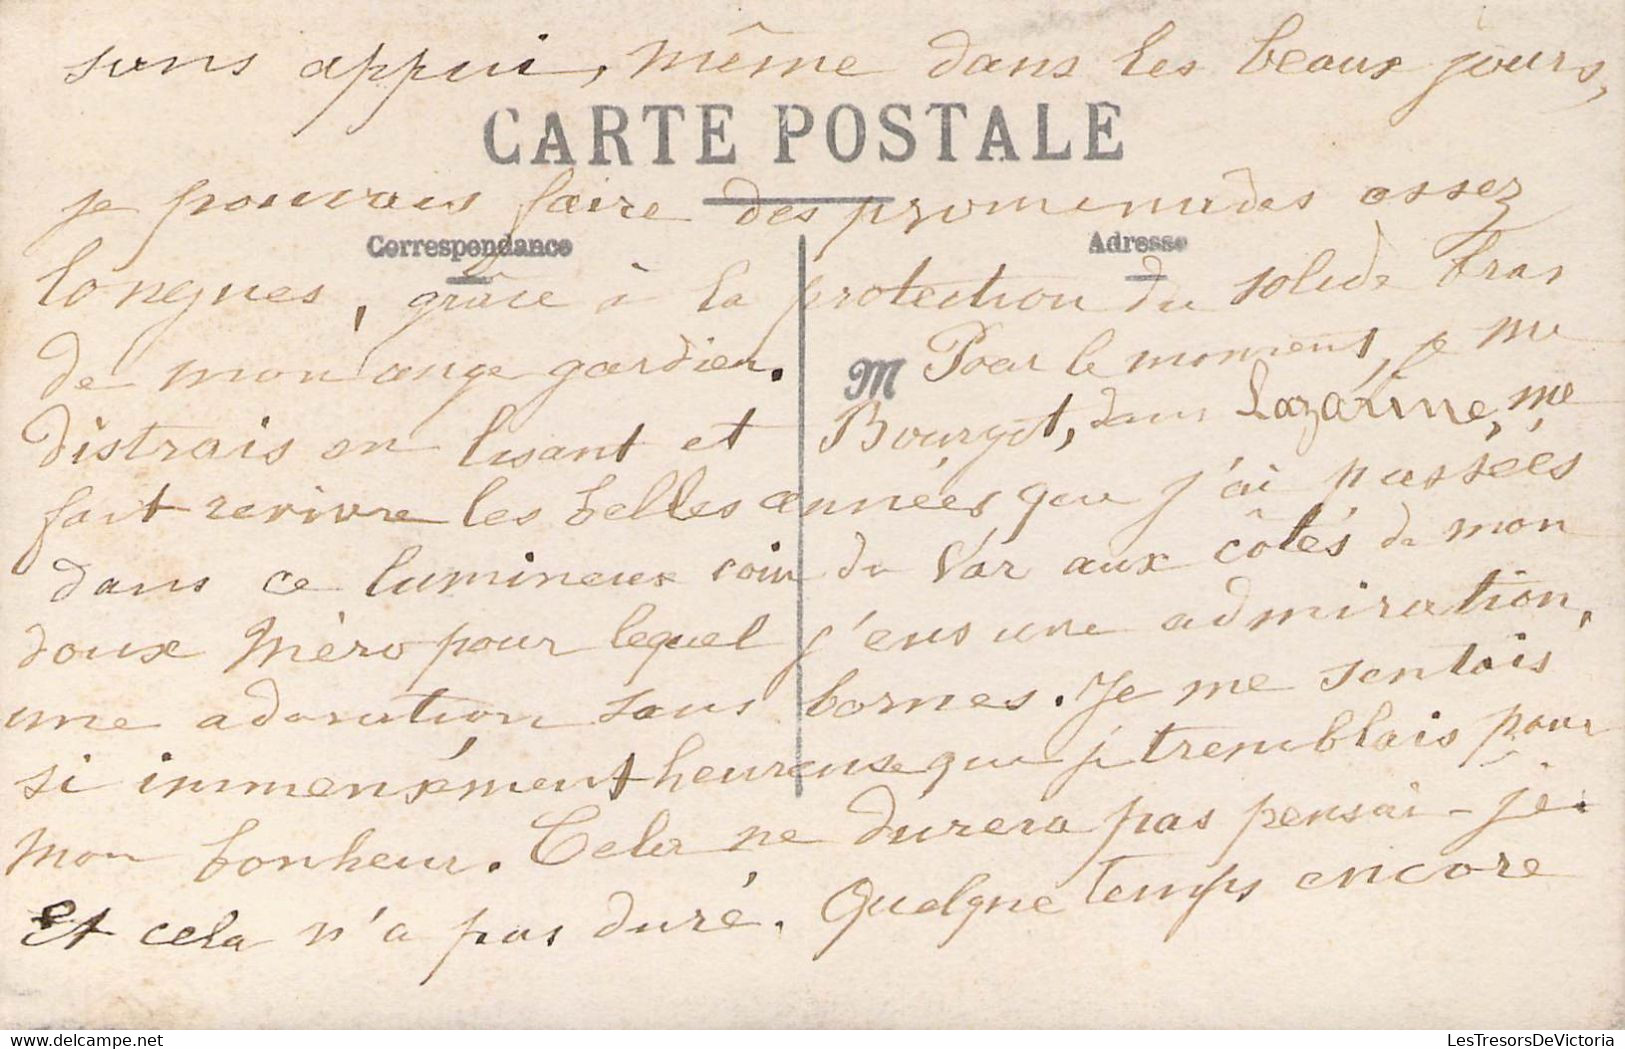 sans appui, même dans les beaux jours,
CARTE POSTALE
je pouvais faire des promenades assez
Correspondance
Adresse
longues, grâce à la protection du solide bras
de mon ange gardien. M Pour le moment, je me
distrais en lisant et Bourget, dans Lazarine, me
fait revivre les belles années que j'ai passées
dans ce lumineux coin du Var aux côtés de mon
doux Méro pour lequel j'eus une admiration,
une adoration sans bornes. Je me sentais
si immensément heureuse que je tremblais pour
mon bonheur. Cela ne durera pas pensai-je.
Et cela n'a pas duré. Quelque temps encore
LesTresorsDeVictoria
delcampe.net